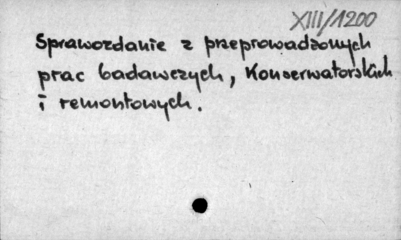 XIII/1200
Sprawozdanie z przeprowadzonych
prac badawczych, Konserwatorskich
i remontowych.